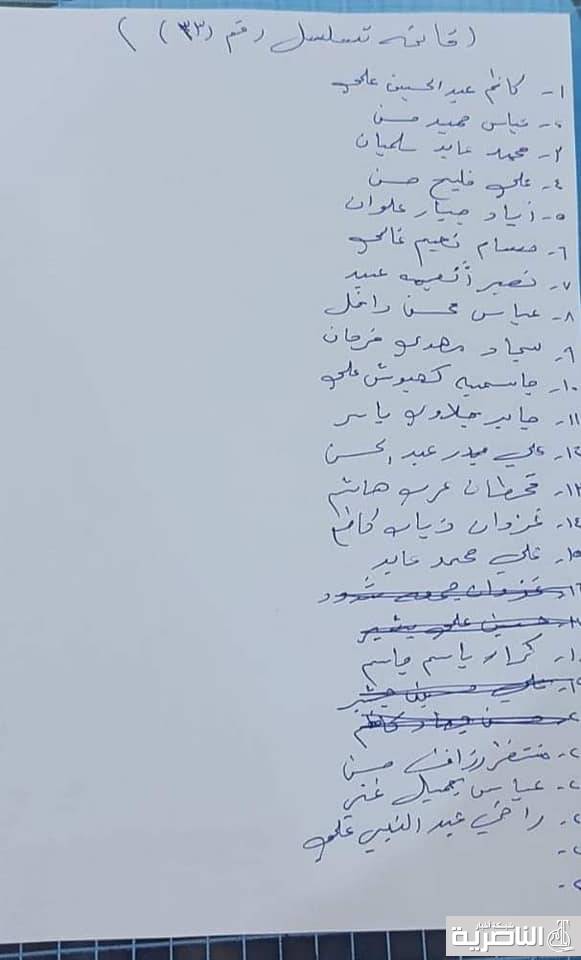 ( قائمة تسلسل رقم (٣٣) )
١- كاظم عبد الحسين علي
٢- عباس حميد حسن
٣- محمد عايد سلمان
٤- علي فليح حسن
٥- زياد جبار علوان
٦- حسام نعيم غالي
٧- نصير نعيمه عبيد
٨- عباس محسن داخل
٩- سجاد مهدي فرحان
١٠- جاسميه كعيوش علي
١١- جابر جلاوي ياسر
١٢- علي حيدر عبد الحسن
١٣- قحطان عرب هاشم
١٤- غزوان ذياب كاظم
١٥- علي محمد عايد
غزوان جمعه
حسين علي بشير
كرار ياسم جاسم
علي حسين
حسن جهاد كاظم
منتظر رزاق حسن
عباس جميل غني
راضي عبد النبي علي
شبكة أخبار
الناصرية